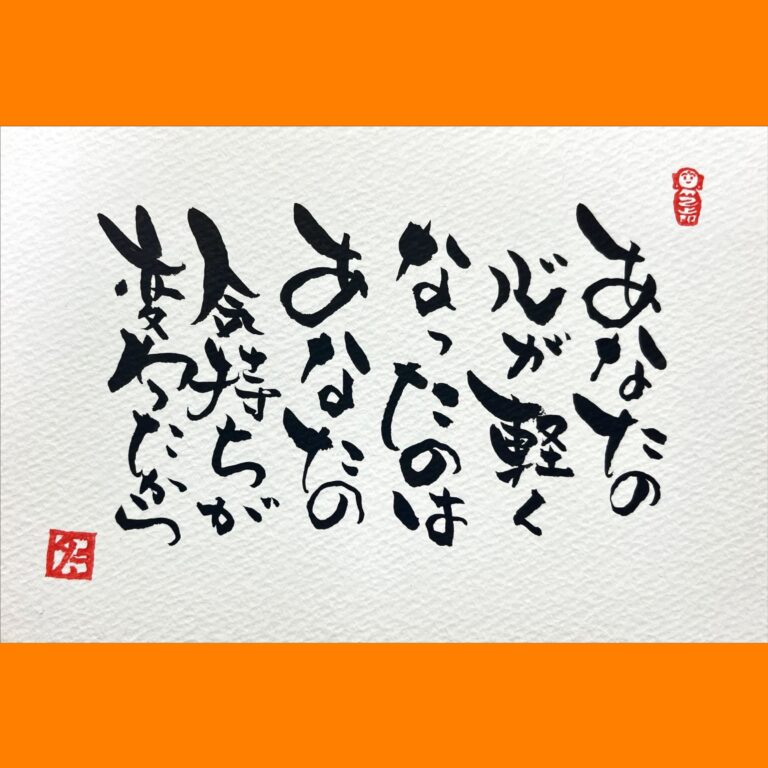 あなたの
心が軽く
なったのは
あなたの
気持ちが
変わったから